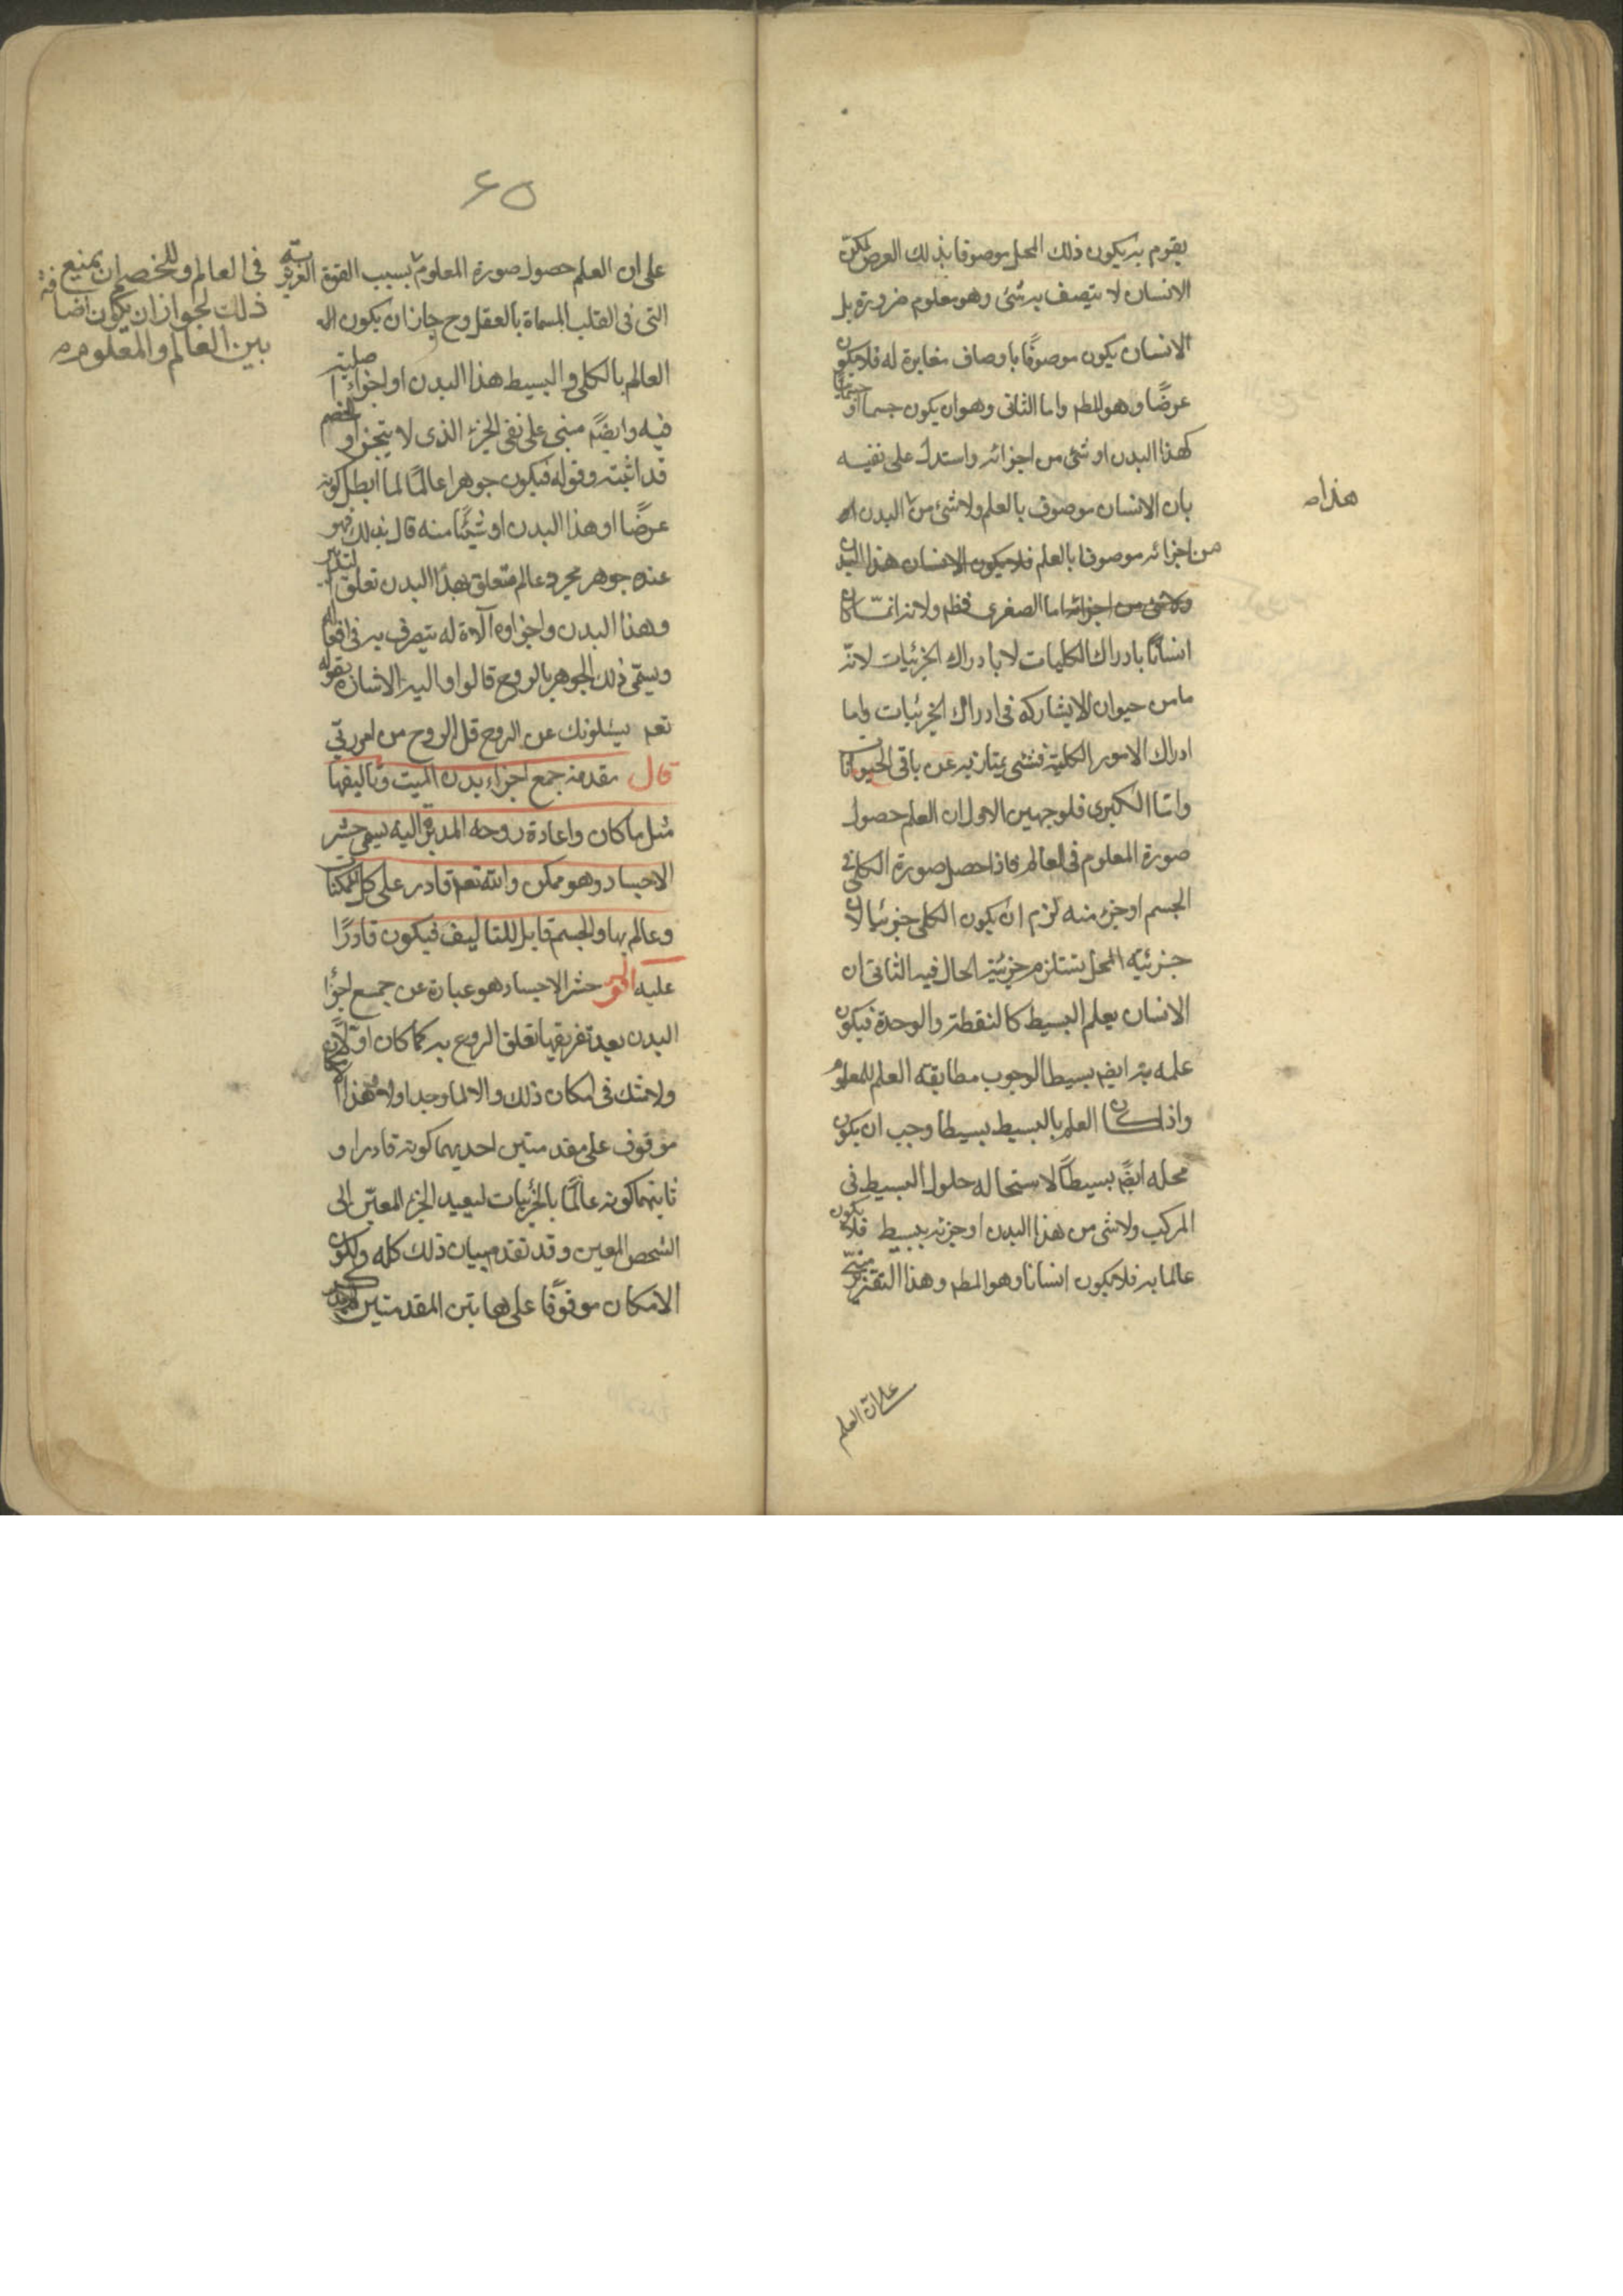 يقوم به يكون ذلك المحل موصوفا بذلك العرض لكن
الانسان لا يتصف به شئ وهو معلوم ضرورة بل
الانسان يكون موصوفًا باوصاف مغايرة له فلا يكون
عرضًا وهو المطم واما الثانى وهو ان يكون جسما او جسمانيا
كهذا البدن او شئ من اجزائه واستدل على نفيه
بان الانسان موصوف بالعلم ولا شئ من البدن او
هذا ص
من اجزائه موصوفا بالعلم فلا يكون الانسان هذا البدن
ولا شئ من اجزائه اما الصغرى فظم ولانه انما كان
انسانًا بادراك الكليات لا بادراك الجزئيات لانه
ما من حيوان الا يشاركه فى ادراك الجزئيات واما
ادراك الامور الكلية فشئ يمتاز به عن باقى الحيوانات
وامّا الكبرى فلوجهين الاول ان العلم حصول
صورة المعلوم فى العالم فاذا حصل صورة الكلى فى
الجسم او جزء منه لزم ان يكون الكلى جزئيا لان
جزئية المحل تستلزم جزئية الحال فيه الثانى ان
الانسان يعلم البسيط كالنقطة والوحدة فيكون
علمه به ايضم بسيطا لوجوب مطابقة العلم للمعلوم
واذا كان العلم بالبسيط بسيطا وجب ان يكون
محله ايضًم بسيطًا لاستحاله حلول البسيط فى
المركب ولا شى من هذا البدن او جزئه ببسيط فلا يكون
عالما به فلا يكون انسانا وهو المطم وهذا التقرير مبنىّ
على ان العلم
٤٥
على ان العلم حصول صورة المعلوم بسبب القوة الغريزية
فى العالم وللخصم ان يمنع
ذلك لجواز ان يكون اضافة
بين العالم والمعلوم ص
التى فى القلب المسماة بالعقل وح جاز ان يكون
العالم بالكلى والبسيط هذا البدن او اجزائه الاصلية
فيه وايضًم مبنى على نفى الجزء الذى لا يتجزا والخصم
قد اثبته وقوله فيكون جوهرا عالمًا لما ابطل كونه
عرضًا او هذا البدن او شيئًا منه قال بذلك فهو
عنده جوهر مجرد عالم متعلق بهذا البدن تعلق التدبير
وهذا البدن واجزاوه آلاة له يتصرف به فى افعاله
ويسمّى ذلك الجوهر بالروح قالوا واليه الاشارة بقوله
تعم يسئلونك عن الروح قل الروح من امر ربّى
قال مقدمة جمع اجزاء بدن الميت وتاليفها
مثل ما كان واعادة روحه المدبرة اليه يسمى حشر
الاجساد وهو ممكن والله تعم قادر على كل الممكنات
وعالم بها والجسم قابل للتاليف فيكون قادرًا
عليه اقول حشر الاجساد هو عبارة عن جمع اجزاء
البدن بعد تفريقها تعلق الروح به كما كان اوّلًا
ولا شك فى امكان ذلك والا لما وجد اولا وهذا الامكان
موقوف على مقدمتين احديهما كونه قادرا و
ثانيتهما كونه عالمًا بالجزئيات ليعيد الجزء المعيّن الى
الشخص المعين وقد تقدم بيان ذلك كله ولكون
الامكان موقوفًا على هاتين المقدمتين